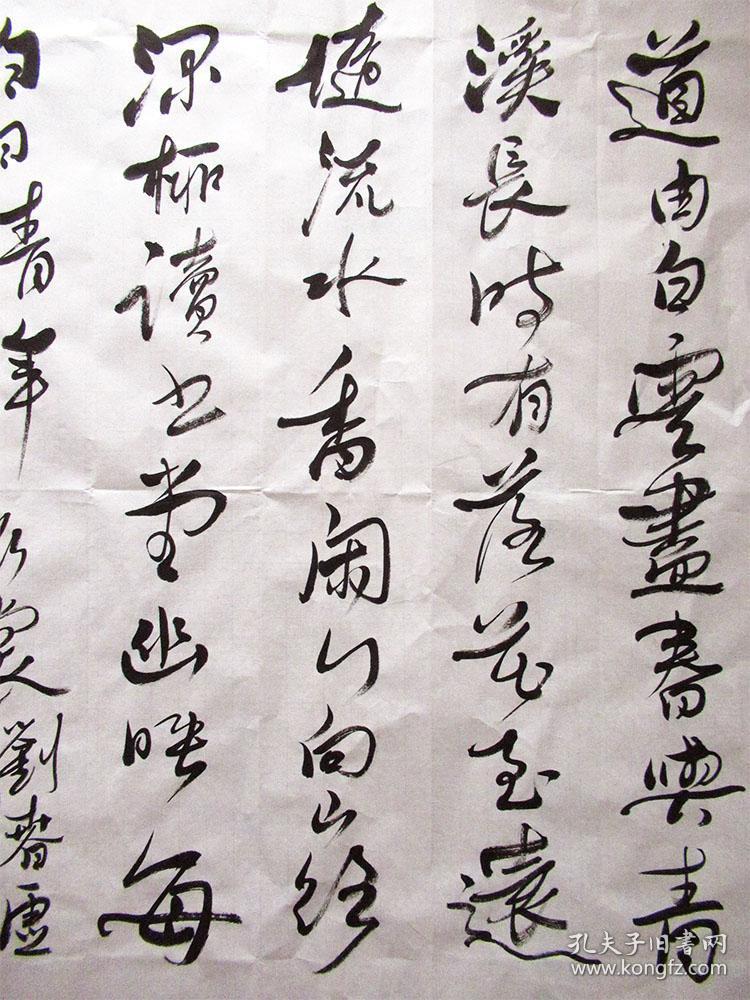 道由白雲盡春與青
溪長時有落花至遠
隨流水香閑门向山路
深柳讀书堂幽映每
白日青年 人劉眘虛
孔夫子旧書网
www.kongfz.com